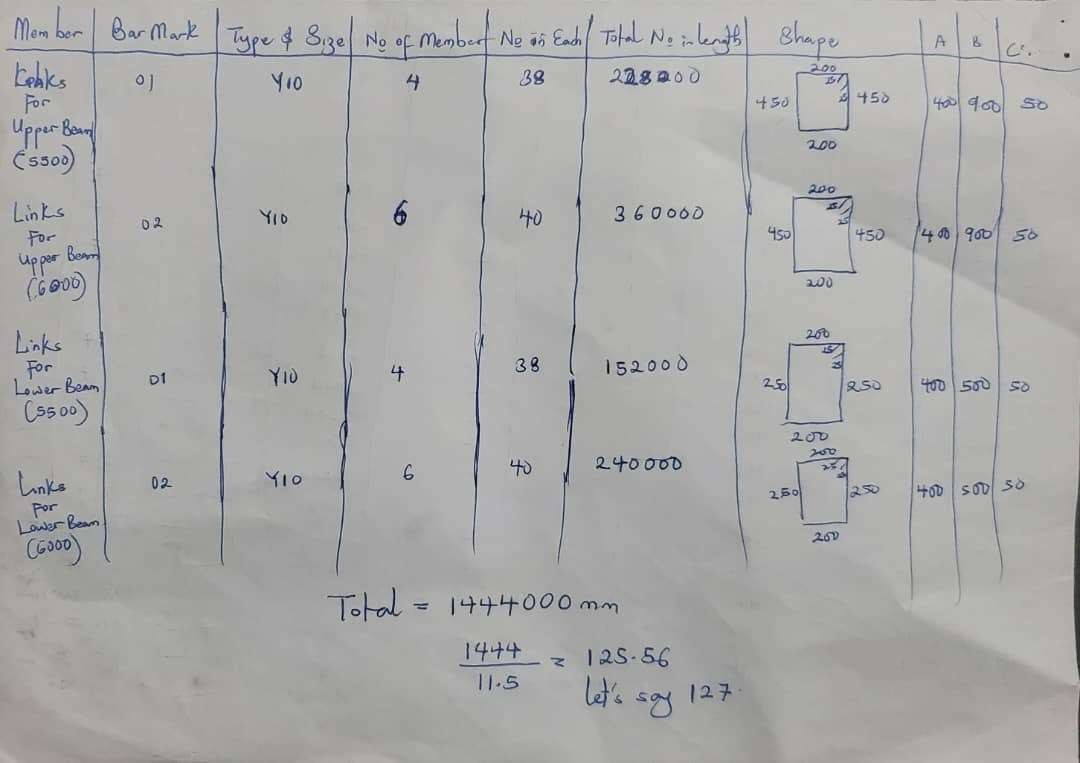 Member Bar Mark Type & Size No of Member No in Each Total No in length Shape A B C.
Links For Upper Beam (5500) 01 Y10 4 38 228000 200 25 25 450 450 200 400 900 50
Links For Upper Beam (6000) 02 Y10 6 40 360000 200 25 25 450 450 200 400 900 50
Links For Lower Beam (5500) 01 Y10 4 38 152000 200 25 25 250 250 200 400 500 50
Links For Lower Beam (6000) 02 Y10 6 40 240000 200 25 250 250 200 400 500 50
Total = 1444000 mm
1444
11.5
= 125.56
let's say 127.